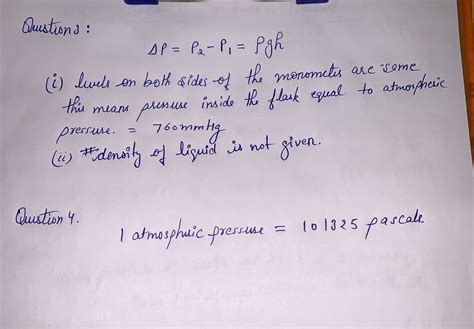 Question 3 :
ΔP = P₂ - P₁ = ρgh
(i) levels on both sides of the monometer are same
this means pressure inside the flask equal to atmospheric
pressure. = 760mmHg
(ii) #density of liquid is not given.
Question 4.
1 atmospheric pressure = 101325 pascals.